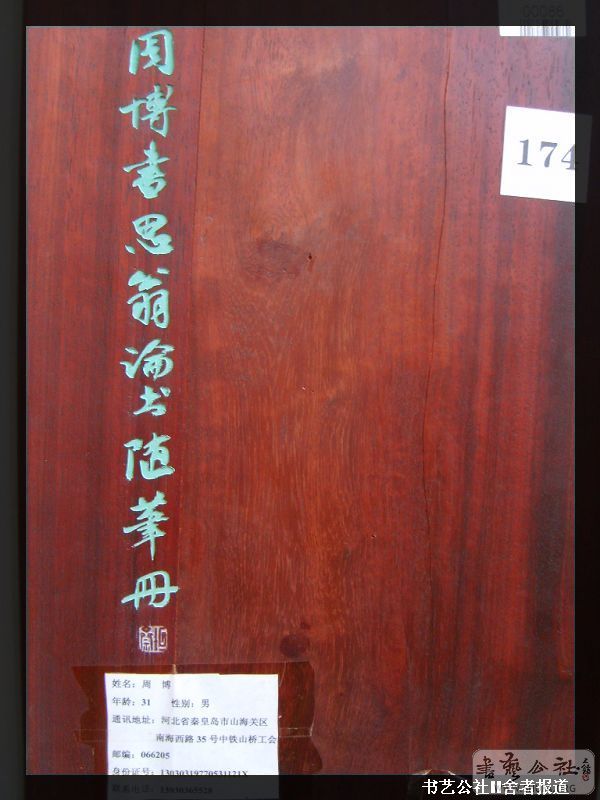 00086
174
周博書思翁論书随筆冊
姓名：周 博
年龄：31 性别：男
通讯地址：河北省秦皇岛市山海关区
南海西路 35 号中铁山桥工会
邮编：066205
身份证号：
联系电话：
書藝公社
书艺公社II舍者报道